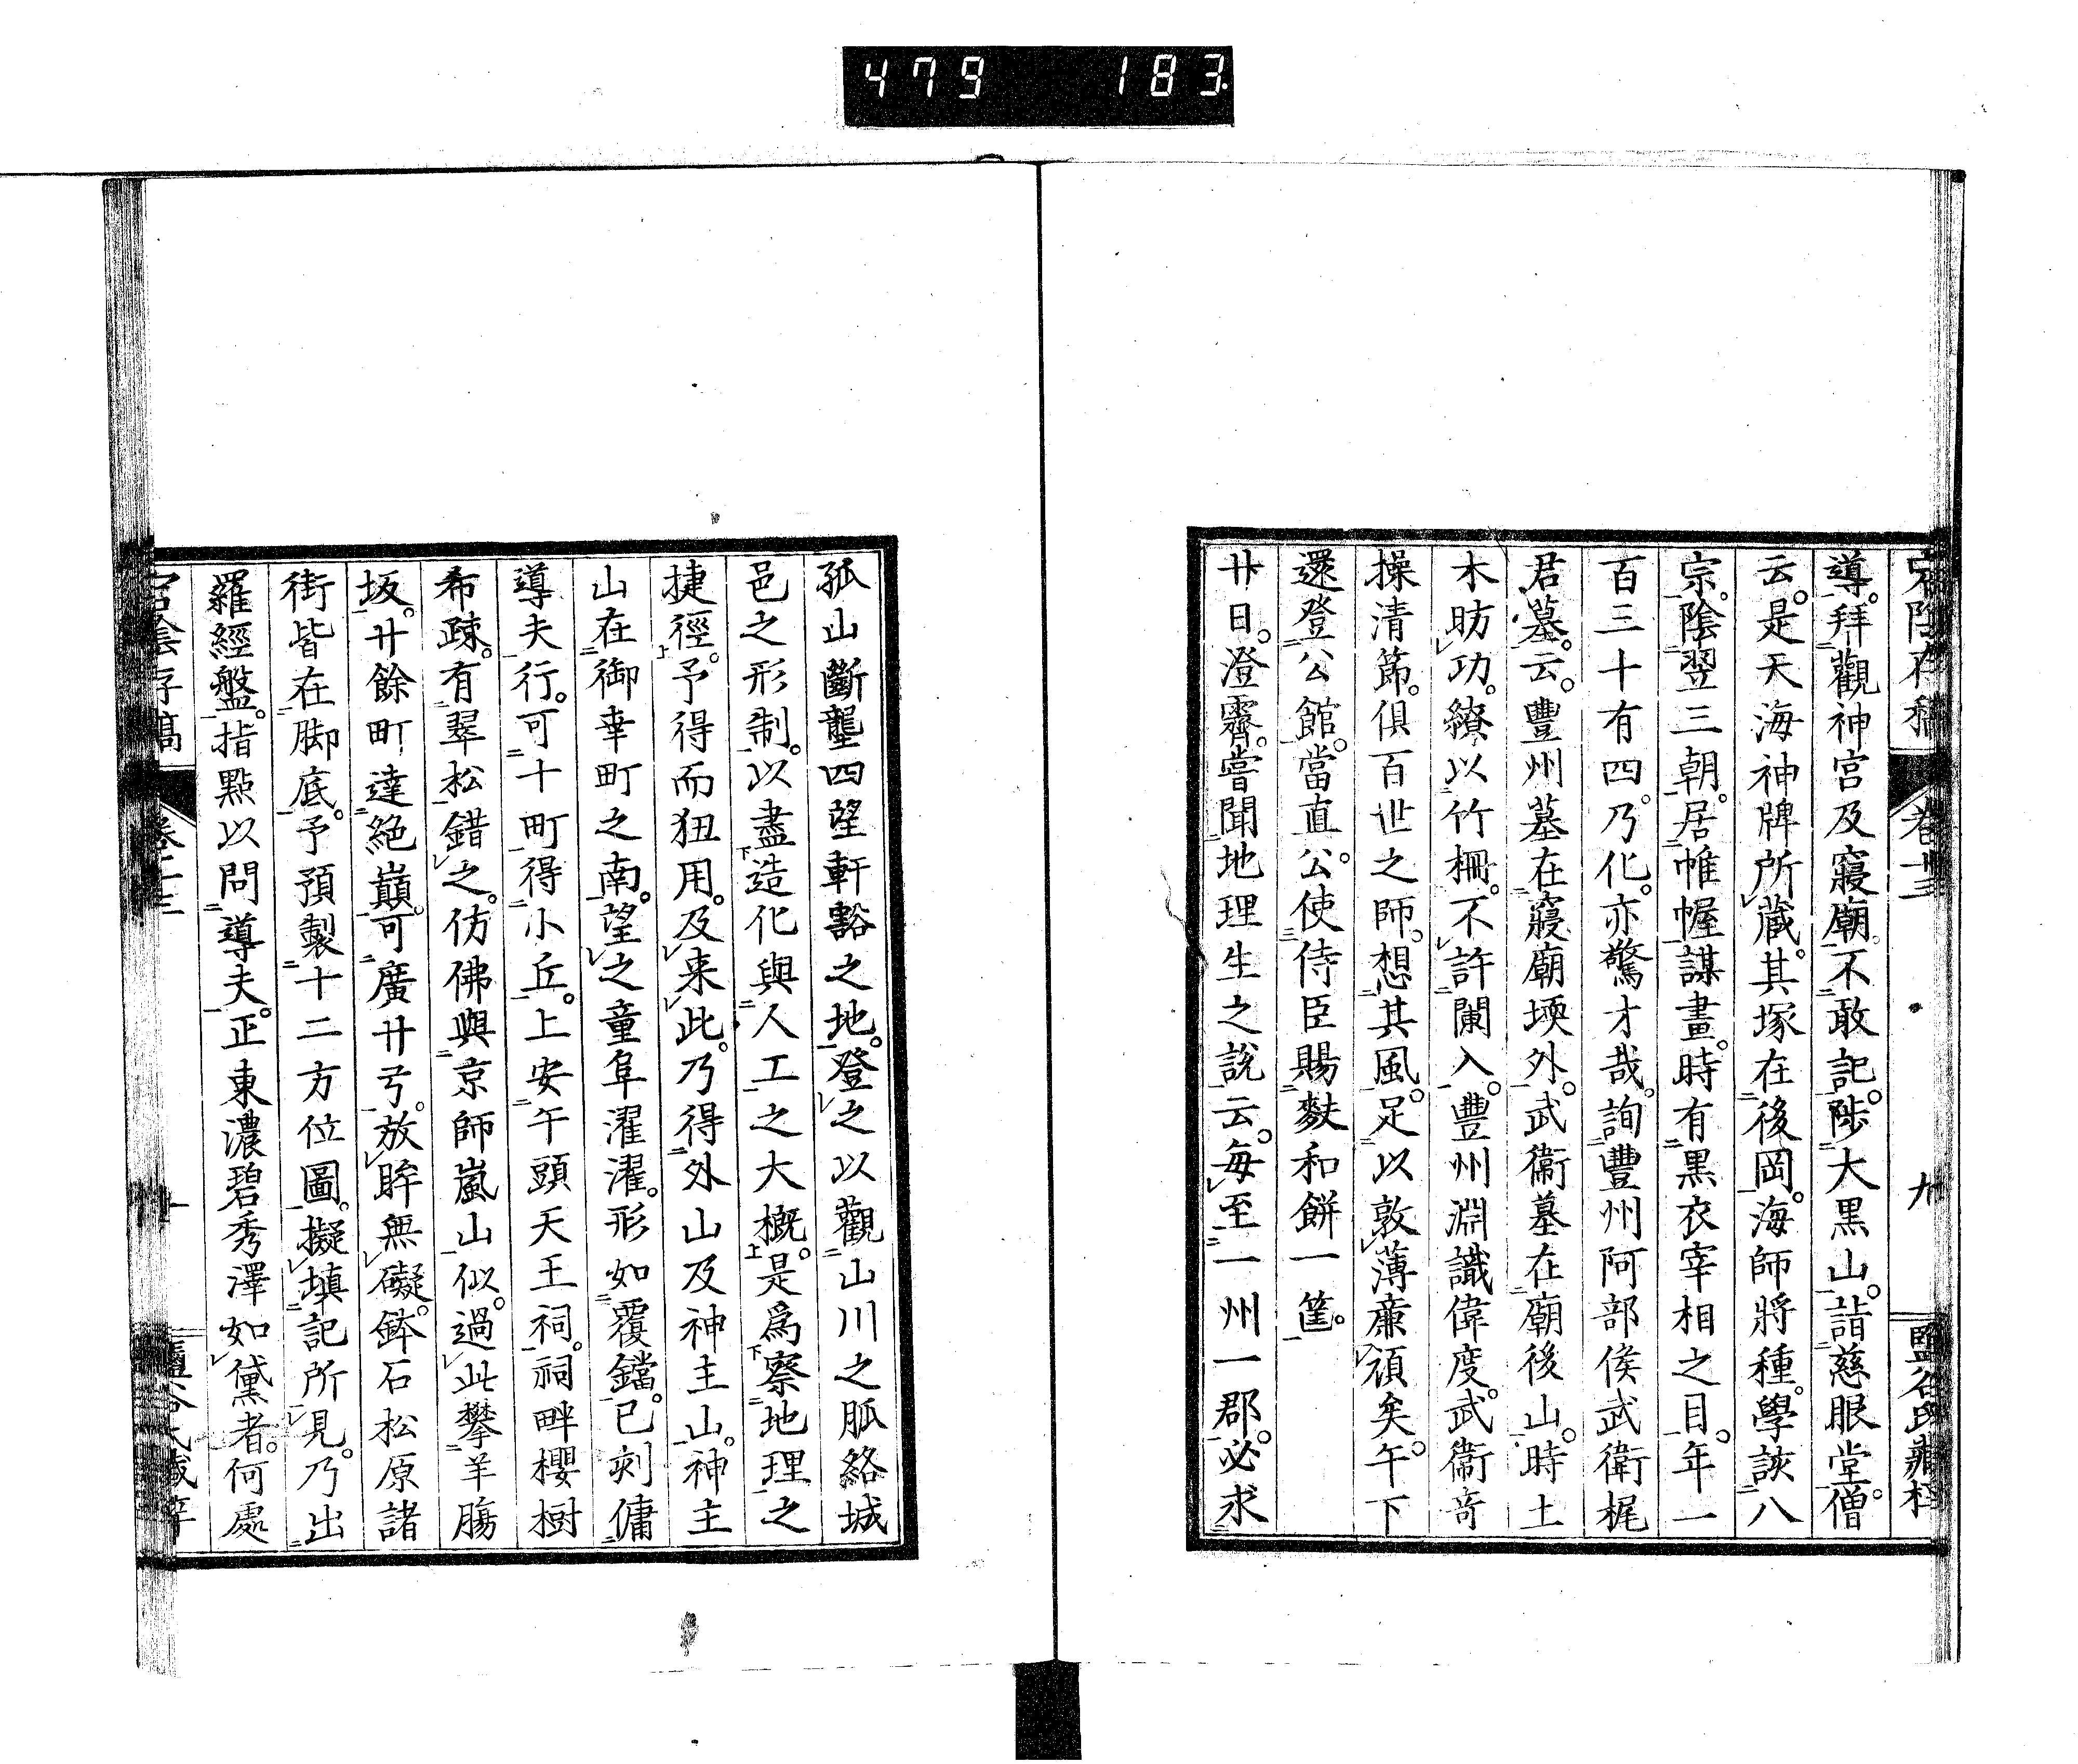 479 183
宕陰存稿 卷十三 九 鹽谷氏藏梓
導。拜觀神宮及寢廟。不敢記。陟大黒山。詣慈眼堂。僧
云。是天海神牌所藏。其塚在後岡。海師將種。學該八
宗。陰翌三朝。居帷幄謀畫。時有黒衣宰相之目。年一
百三十有四。乃化。亦驚才哉。詢豐州阿部侯武衛梶
君墓。云。豐州墓在寢廟堧外。武衞墓在廟後山。時土
木昉功。繚以竹柵。不許闌入。豐州淵識偉度。武衞奇
操清節。俱百世之師。想其風。足以敦薄廉頑矣。午下
還登公館。當直公。使侍臣賜麩和餅一筐。
廿日。澄霽。嘗聞地理生之說云。每至一州一郡。必求
孤山斷壟四望軒豁之地。登之以觀山川之脈絡城
邑之形制。以盡造化與人工之大概。是爲察地理之
捷徑。予得而狃用。及來此。乃得外山及神主山。神主
山在御幸町之南。望之童阜濯濯。形如覆鐺。已刻傭
導夫行。可十町得小丘。上安午頭天王祠。祠畔櫻樹
希疎。有翠松錯之。彷佛與京師嵐山似。過此攀羊腸
坂。廿餘町達絶巔。可廣廿弓。放眸無礙。鉢石松原諸
街皆在脚底。予預製十二方位圖。擬塡記所見。乃出
羅經盤。指點以問導夫。正東濃碧秀澤如黛者。何處
宕陰存稿 卷十三 十 鹽谷氏藏梓